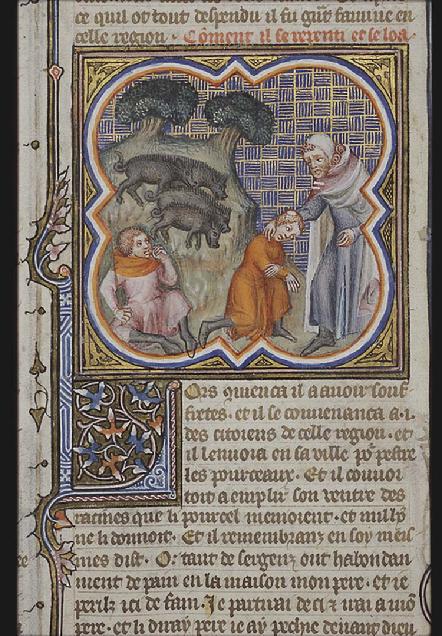 ce quil ot tout despendu il fu gñt famine en
celle region. Cõment il se repenti et se loa.
Ors quencा il a auoir souf
fretes. et il se conuenanca a .i.
des citoiens de celle region. et
il lenuoia en sa ville po᷑ pestre
les pourceaux. Et il couuoi
toit a emplir son uentre des
racines que li pourcel menoient. et nullȳ
ne li donnoit. Et il remembranz en soy meis
mes dist. Or tant de sergenz ont habondan
ment de pain en la maison mon pere. et ie
peris ici de faim. Je partirai de ci ⁊ irai a mõ
pere. et li diray pere ie ay pechie deuant dieu